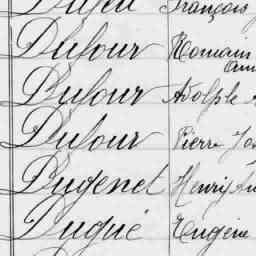 François
Dufour Romain
Dufour Adolphe
Dufour Pierre
Dugenet Henri
Dugué Eugène